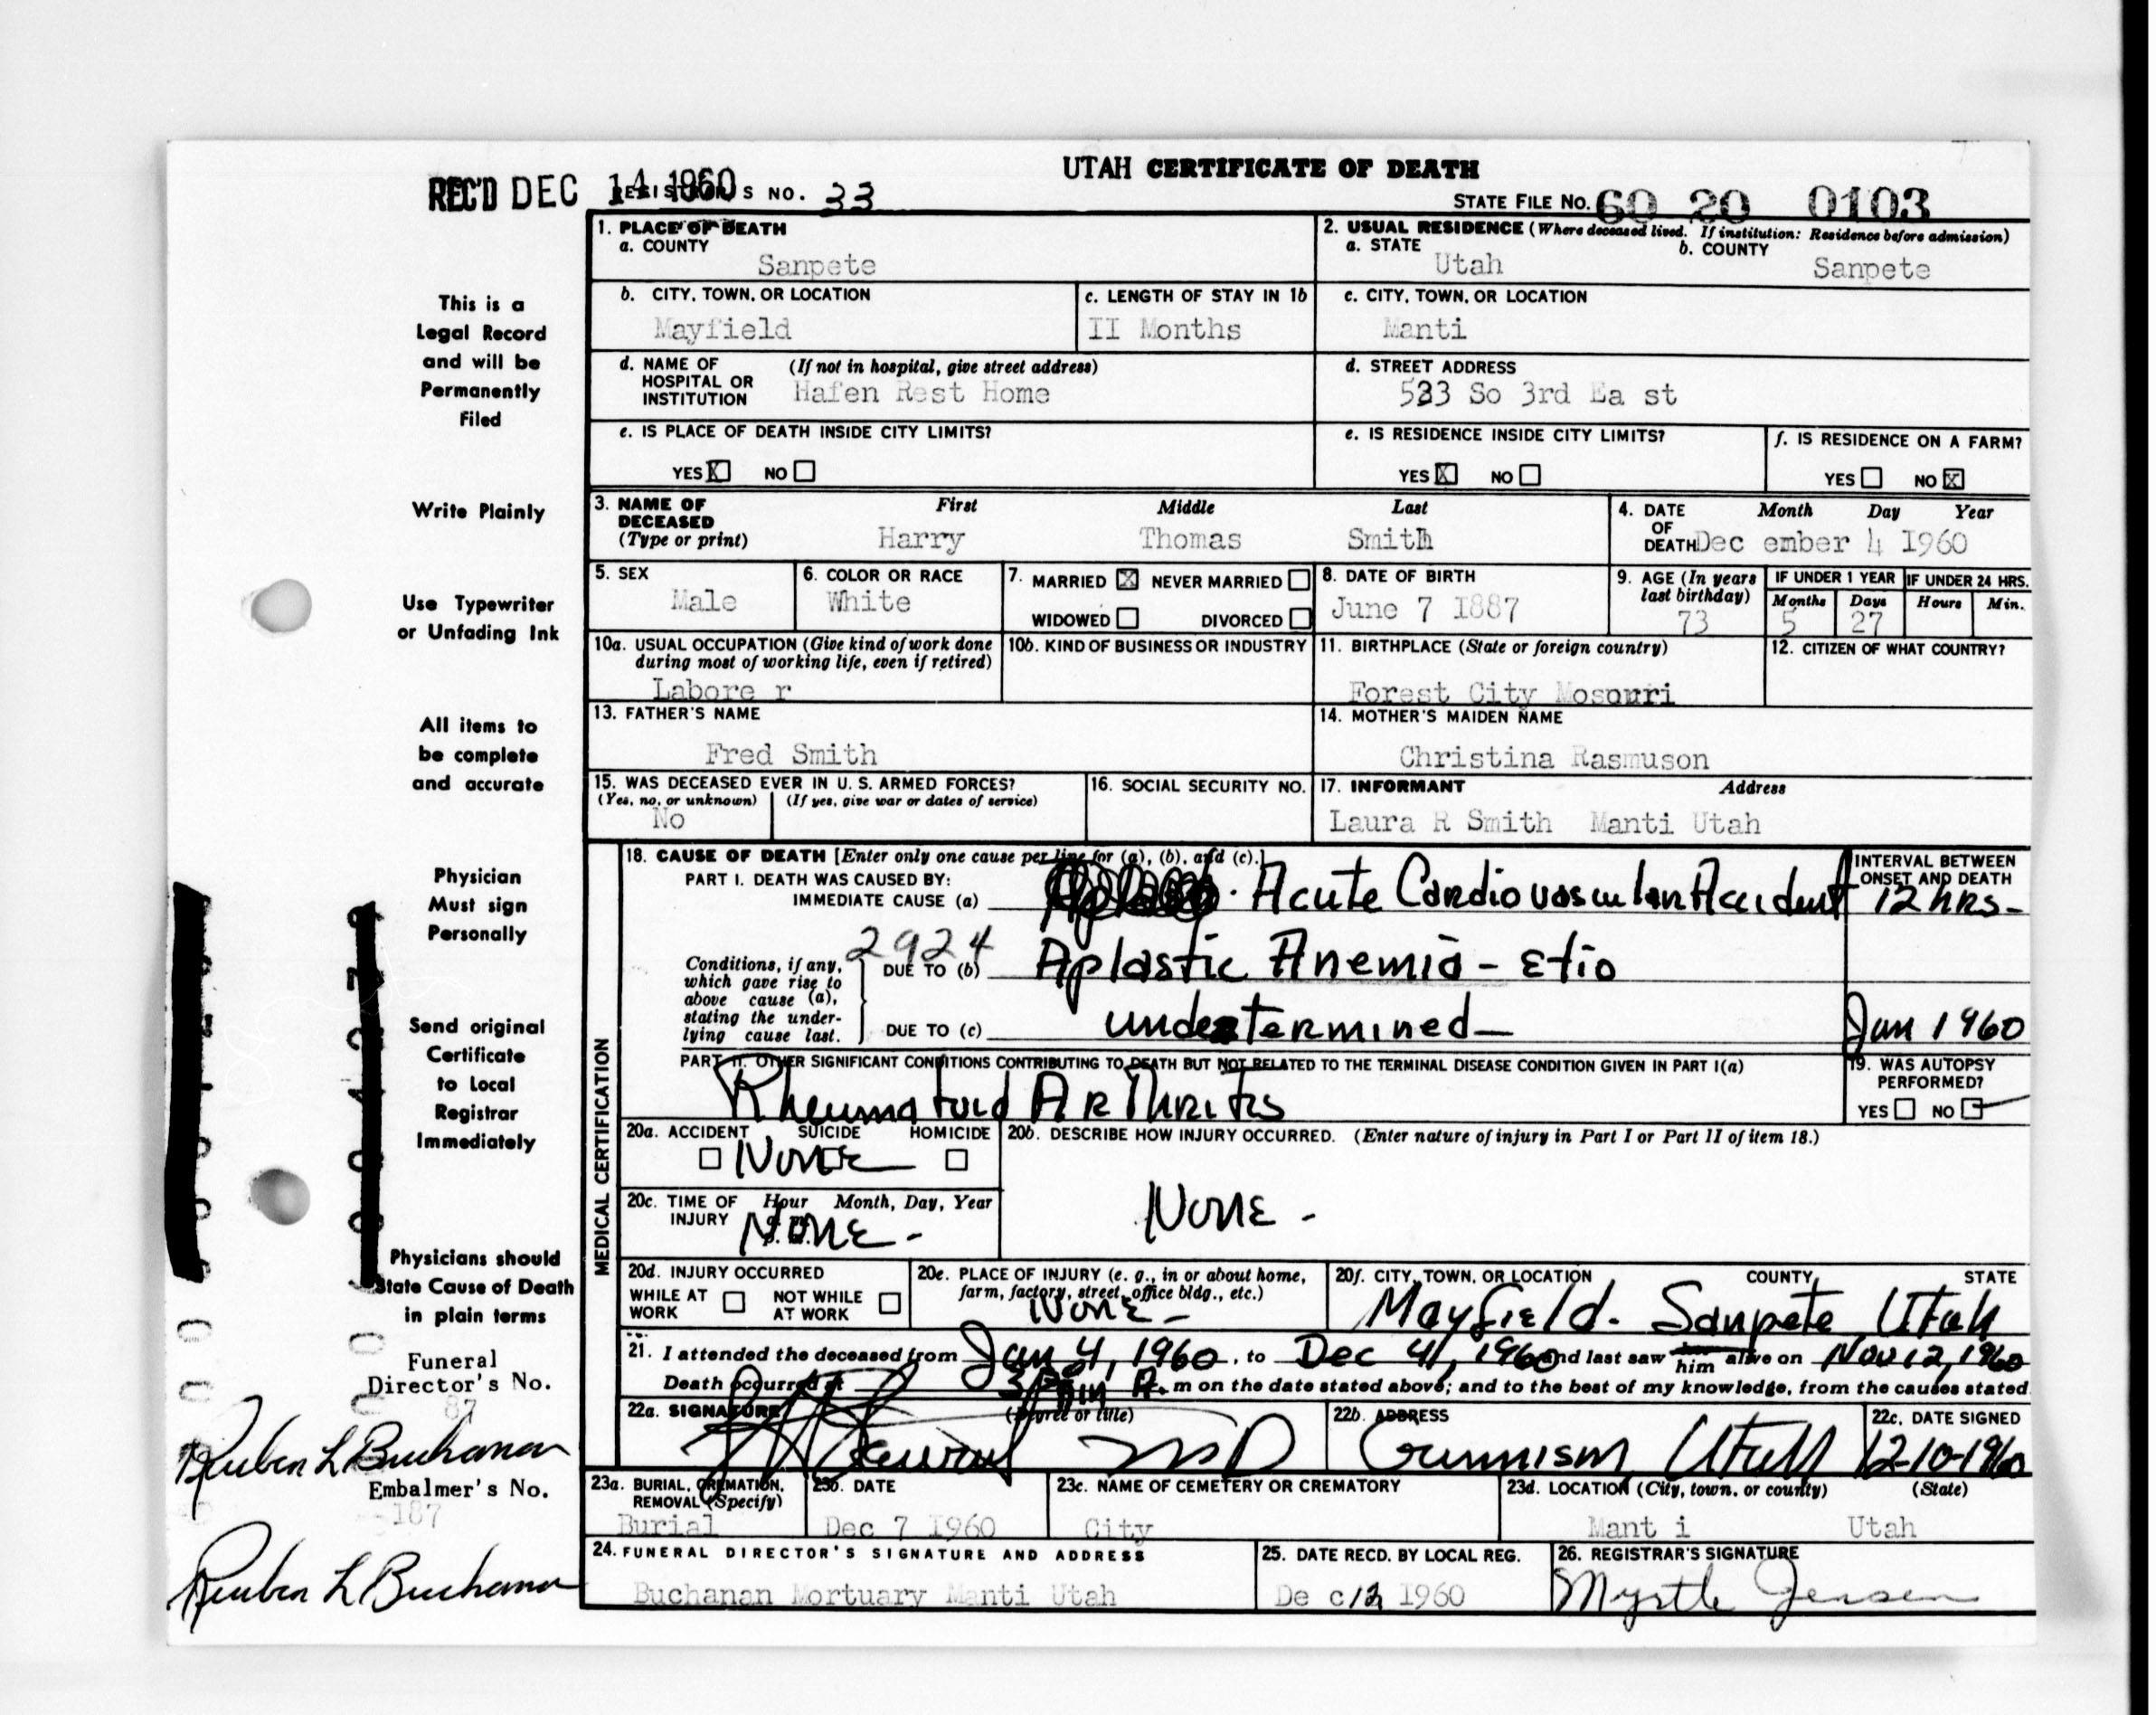 UTAH CERTIFICATE OF DEATH
REC'D DEC 14 1960 REGISTRAR'S NO. 33
STATE FILE No. 60 20 0103
1. PLACE OF DEATH
a. COUNTY
Sanpete
2. USUAL RESIDENCE (Where deceased lived. If institution: Residence before admission)
a. STATE b. COUNTY
Utah Sanpete
b. CITY, TOWN, OR LOCATION
Mayfield
c. LENGTH OF STAY IN 1b
II Months
c. CITY, TOWN, OR LOCATION
Manti
d. NAME OF HOSPITAL OR INSTITUTION (If not in hospital, give street address)
Hafen Rest Home
d. STREET ADDRESS
533 So 3rd Ea st
e. IS PLACE OF DEATH INSIDE CITY LIMITS?
YES X NO
e. IS RESIDENCE INSIDE CITY LIMITS?
YES X NO
f. IS RESIDENCE ON A FARM?
YES NO X
3. NAME OF DECEASED (Type or print)
First Middle Last
Harry Thomas Smith
4. DATE OF DEATH Month Day Year
Dec ember 4 1960
5. SEX
Male
6. COLOR OR RACE
White
7. MARRIED X NEVER MARRIED
WIDOWED DIVORCED
8. DATE OF BIRTH
June 7 1887
9. AGE (In years last birthday)
73
IF UNDER 1 YEAR IF UNDER 24 HRS.
Months Days Hours Min.
5 27
10a. USUAL OCCUPATION (Give kind of work done during most of working life, even if retired)
Labore r
10b. KIND OF BUSINESS OR INDUSTRY
11. BIRTHPLACE (State or foreign country)
Forest City Mosouri
12. CITIZEN OF WHAT COUNTRY?
13. FATHER'S NAME
Fred Smith
14. MOTHER'S MAIDEN NAME
Christina Rasmuson
15. WAS DECEASED EVER IN U. S. ARMED FORCES?
(Yes, no, or unknown) (If yes, give war or dates of service)
No
16. SOCIAL SECURITY NO.
17. INFORMANT Address
Laura R Smith Manti Utah
MEDICAL CERTIFICATION
18. CAUSE OF DEATH [Enter only one cause per line for (a), (b), and (c).]
PART I. DEATH WAS CAUSED BY:
IMMEDIATE CAUSE (a) Acute Cardiovascular Accident
INTERVAL BETWEEN ONSET AND DEATH
12 hrs-
2924
Conditions, if any, which gave rise to above cause (a), stating the underlying cause last.
DUE TO (b) Aplastic Anemia - Etio
DUE TO (c) undetermined-
Jan 1960
PART II. OTHER SIGNIFICANT CONDITIONS CONTRIBUTING TO DEATH BUT NOT RELATED TO THE TERMINAL DISEASE CONDITION GIVEN IN PART I(a)
Rheumatoid Arthritis
19. WAS AUTOPSY PERFORMED?
YES NO
20a. ACCIDENT SUICIDE HOMICIDE
None
20b. DESCRIBE HOW INJURY OCCURRED. (Enter nature of injury in Part I or Part II of item 18.)
None -
20c. TIME OF INJURY Hour Month, Day, Year
None -
20d. INJURY OCCURRED
WHILE AT WORK NOT WHILE AT WORK
20e. PLACE OF INJURY (e. g., in or about home, farm, factory, street, office bldg., etc.)
None -
20f. CITY, TOWN, OR LOCATION COUNTY STATE
Mayfield. Sanpete Utah
21. I attended the deceased from Jan 4, 1960, to Dec 4, 1960 and last saw her him alive on Nov 12, 1960
Death occurred at A. m on the date stated above; and to the best of my knowledge, from the causes stated.
22a. SIGNATURE (Degree or title)
MD
22b. ADDRESS
Gunnison, Utah
22c. DATE SIGNED
12-10-1960
23a. BURIAL, CREMATION, REMOVAL (Specify)
Burial
23b. DATE
Dec 7 1960
23c. NAME OF CEMETERY OR CREMATORY
City
23d. LOCATION (City, town, or county) (State)
Mant i Utah
24. FUNERAL DIRECTOR'S SIGNATURE AND ADDRESS
Buchanan Mortuary Manti Utah
25. DATE RECD. BY LOCAL REG.
De c 12 1960
26. REGISTRAR'S SIGNATURE
Myrtle Jensen
This is a
Legal Record
and will be
Permanently
Filed
Write Plainly
Use Typewriter
or Unfading Ink
All items to
be complete
and accurate
Physician
Must sign
Personally
Send original
Certificate
to Local
Registrar
Immediately
Physicians should
State Cause of Death
in plain terms
Funeral
Director's No.
87
Reuben L Buchanan
Embalmer's No.
187
Reuben L Buchanan